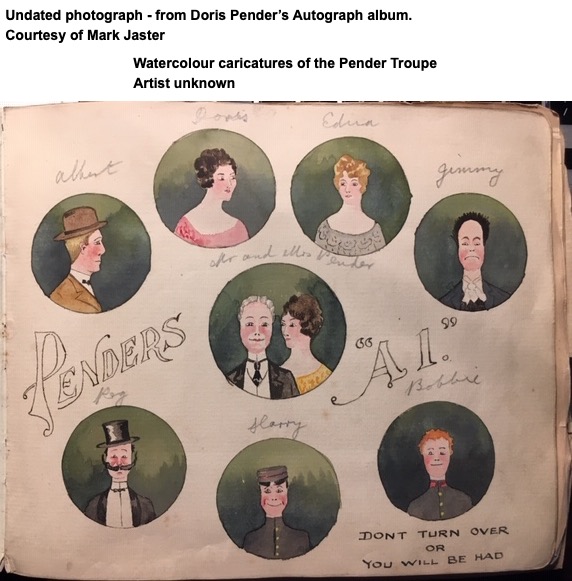 Undated photograph - from Doris Pender's Autograph album.
Courtesy of Mark Jaster
Watercolour caricatures of the Pender Troupe
Artist unknown
Doris
Edna
albert
Jimmy
Mr and Mrs Pender
PENDERS
"A1."
Roy
Harry
Bobbie
DONT TURN OVER
OR
YOU WILL BE HAD